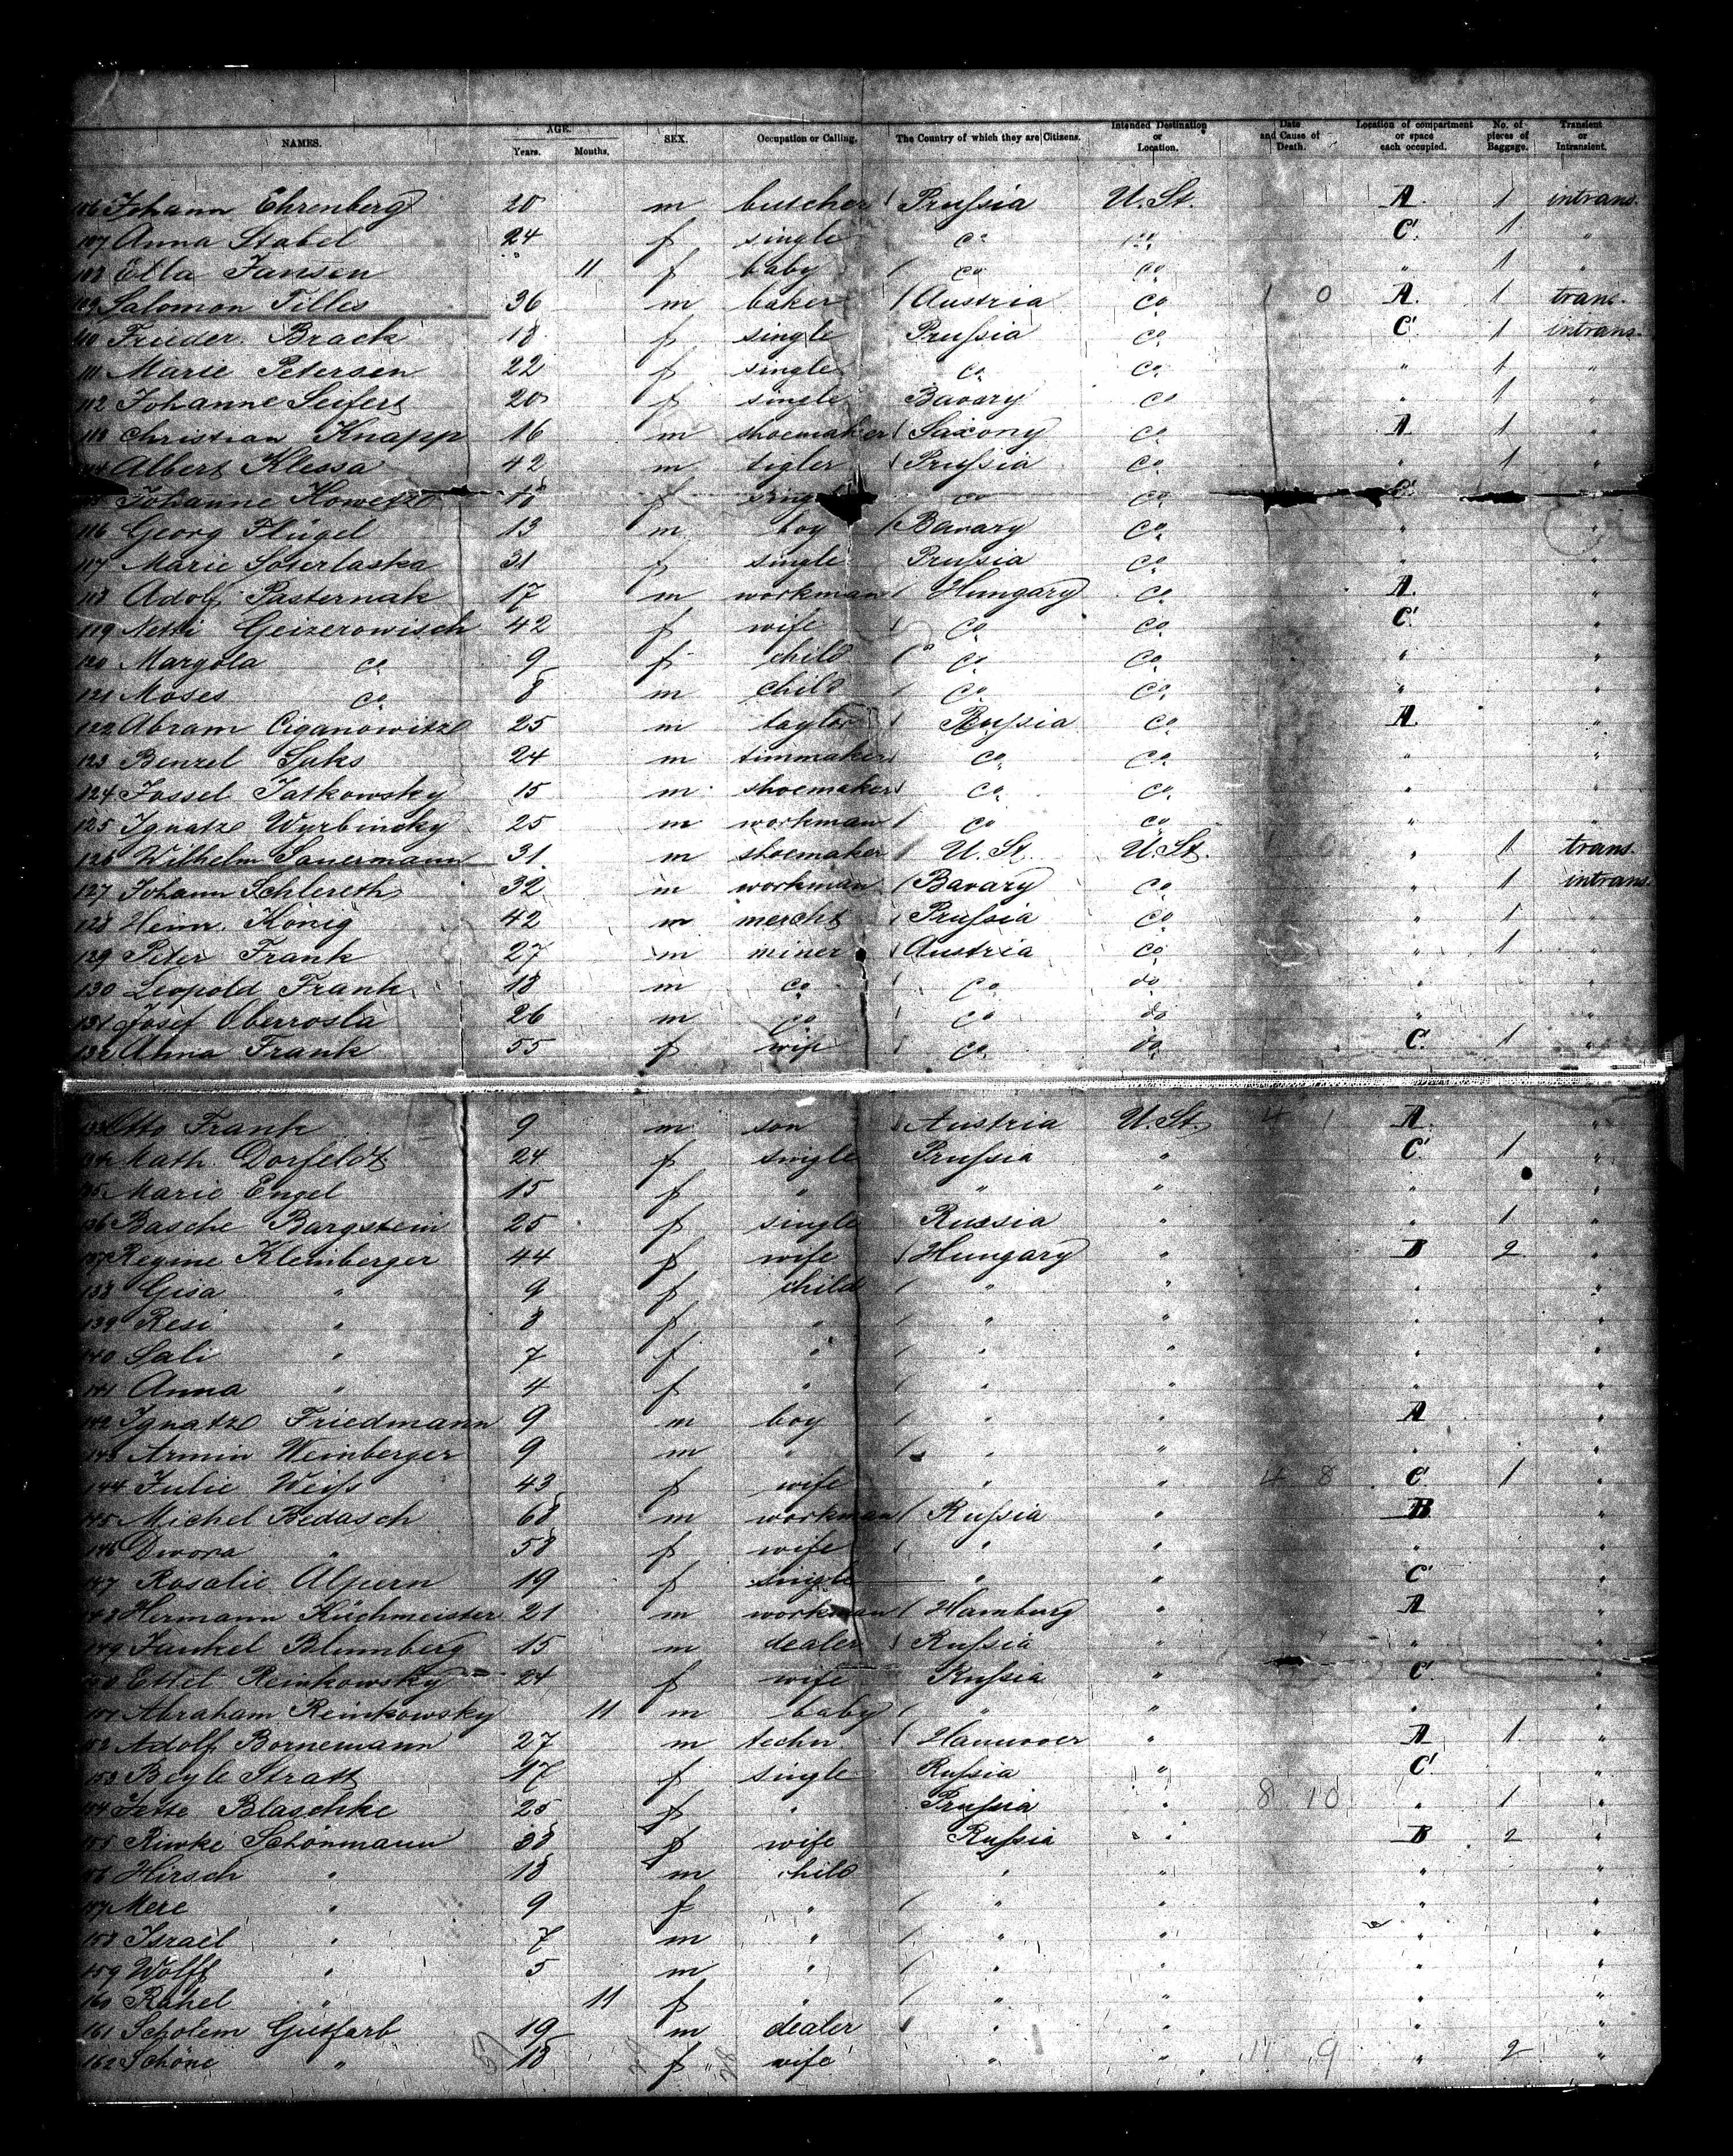 NAMES. AGE. Years. Months. SEX. Occupation or Calling. The Country of which they are Citizens. Intended Destination or Location. Date and Cause of Death. Location of compartment or space each occupied. No. of pieces of Baggage. Transient or Intransient.
106 Johann Ehrenberg 20 m butcher Prussia U. St. A. 1 intrans.
107 Anna Stabel 24 f single co co C. 1 "
108 Ella Jansen 11 f baby co co " 1 "
109 Salomon Tilles 36 m baker Austria co 1 0 A. 1 trans.
110 Frieder. Brack 18 f single Prussia co C. 1 intrans.
111 Marie Petersen 22 f single co co " 1 "
112 Johanne Seifert 20 f single Bavary co " 1 "
113 Christian Knapp 16 m shoemaker Saxony co A 1 "
114 Albert Klessa 42 m tigler Prussia co " 1 "
115 Johanne 18 f single co co C.
116 Georg Flügel 13 m boy Bavary co " "
117 Marie 31 f single Prussia co " "
118 Adolf Pasternak 17 m workman Hungary co A. "
119 Netti Geizerowisch 42 f wife co co C. "
120 Margola co 9 f child co co " "
121 Moses co 8 m child co co " "
122 Abram Ciganowitz 25 m taylor Russia co A. "
123 Benzel Saks 24 m tinnmaker co co " "
124 Jossel Jatkowsky 15 m shoemaker co co " "
125 Ignatz Wyrbinsky 25 m workman co co " "
126 Wilhelm Sauermann 31 m shoemaker U. St. U. St. 1 0 " 1 trans.
127 Johann Schlereth 32 m workman Bavary co " 1 intrans.
128 Heinr. König 42 m mercht Prussia co " 1 "
129 Peter Frank 27 m miner Austria co " 1 "
130 Leopold Frank 18 m co co do " "
131 Josef Oberrosla 26 m co co do " "
132 Anna Frank 55 f wife co do C. 1 "
133 Otto Frank 9 m son Austria U. St. 4 1 A. "
134 Math. Dorfeldt 24 f single Prussia " C. 1 "
135 Marie Engel 15 f " " " " "
136 Basche Bargstein 25 f single Russia " " 1 "
137 Regine Kleinberger 44 f wife Hungary " B 2 "
138 Gisa " 9 f child " " " "
139 Resi " 8 f " " " " "
140 Sali " 7 f " " " " "
141 Anna " 4 f " " " " "
142 Ignatz Friedmann 9 m boy " " A "
143 Armin Weinberger 9 m " " " " "
144 Julie Weiss 43 f wife " " 4 8 C. 1 "
145 Michel Bedasch 68 m workman Russia " B "
146 Dwora " 58 f wife " " " "
147 Rosalie Alpern 19 f single " " C. "
148 Hermann Küchmeister 21 m workman Hamburg " A "
149 Jankel Blumberg 15 m dealer Russia " " "
150 Ettel Reinkowsky 24 f wife Russia " C. "
151 Abraham Reinkowsky 11 m baby " " " "
152 Adolf Bornemann 27 m techn. Hannover " A 1 "
153 Beyle Stratt 17 f single Russia " C. "
154 Jette Blaschke 25 f " Prussia " 8 10 " 1 "
155 Riwke Schönmann 38 f wife Russia " B 2 "
156 Hirsch " 18 m child " " " "
157 Mere " 9 f " " " " "
158 Israel " 7 m " " " " "
159 Wolff " 5 m " " " " "
160 Rahel " 11 f " " " " "
161 Scholem Gutfarb 19 m dealer " " " "
162 Schöne " 18 f wife " " 11 9 " 2 "